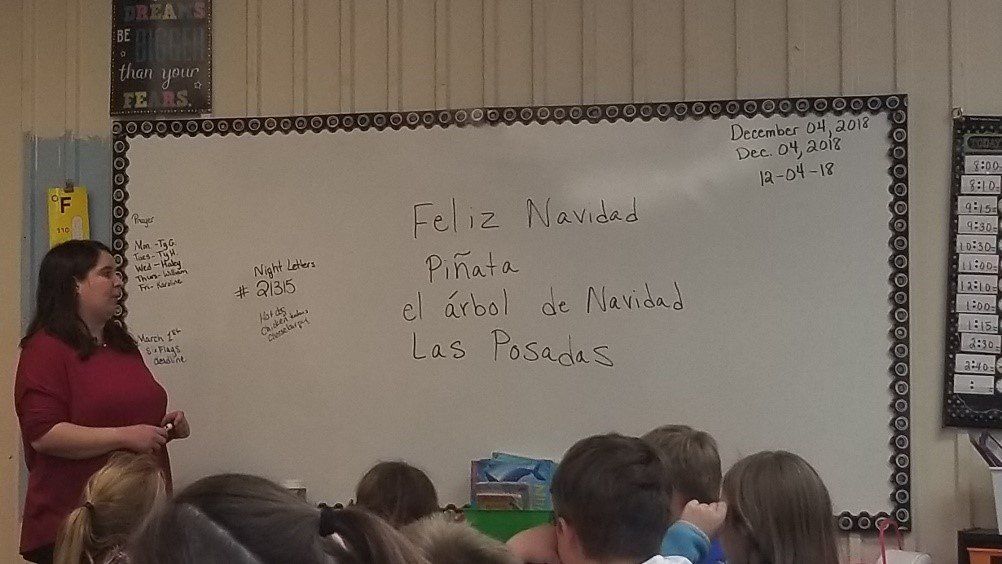 DREAMS
BE BIGGER
than your
FEARS.
F
Prayer
Mon - Ty G.
Tues - Ty H.
Wed - Haley
Thurs - William
Fri - Karoline
March 1st
deadline
Night Letters
# 21315
Hot dog
Chicken
Feliz Navidad
Piñata
el árbol de Navidad
Las Posadas
December 04, 2018
Dec. 04, 2018
12-04-18
TODAY
8:00
8:10
9:15
9:30
10:30
11:00
12:10
1:00
1:15
2:30
2:40